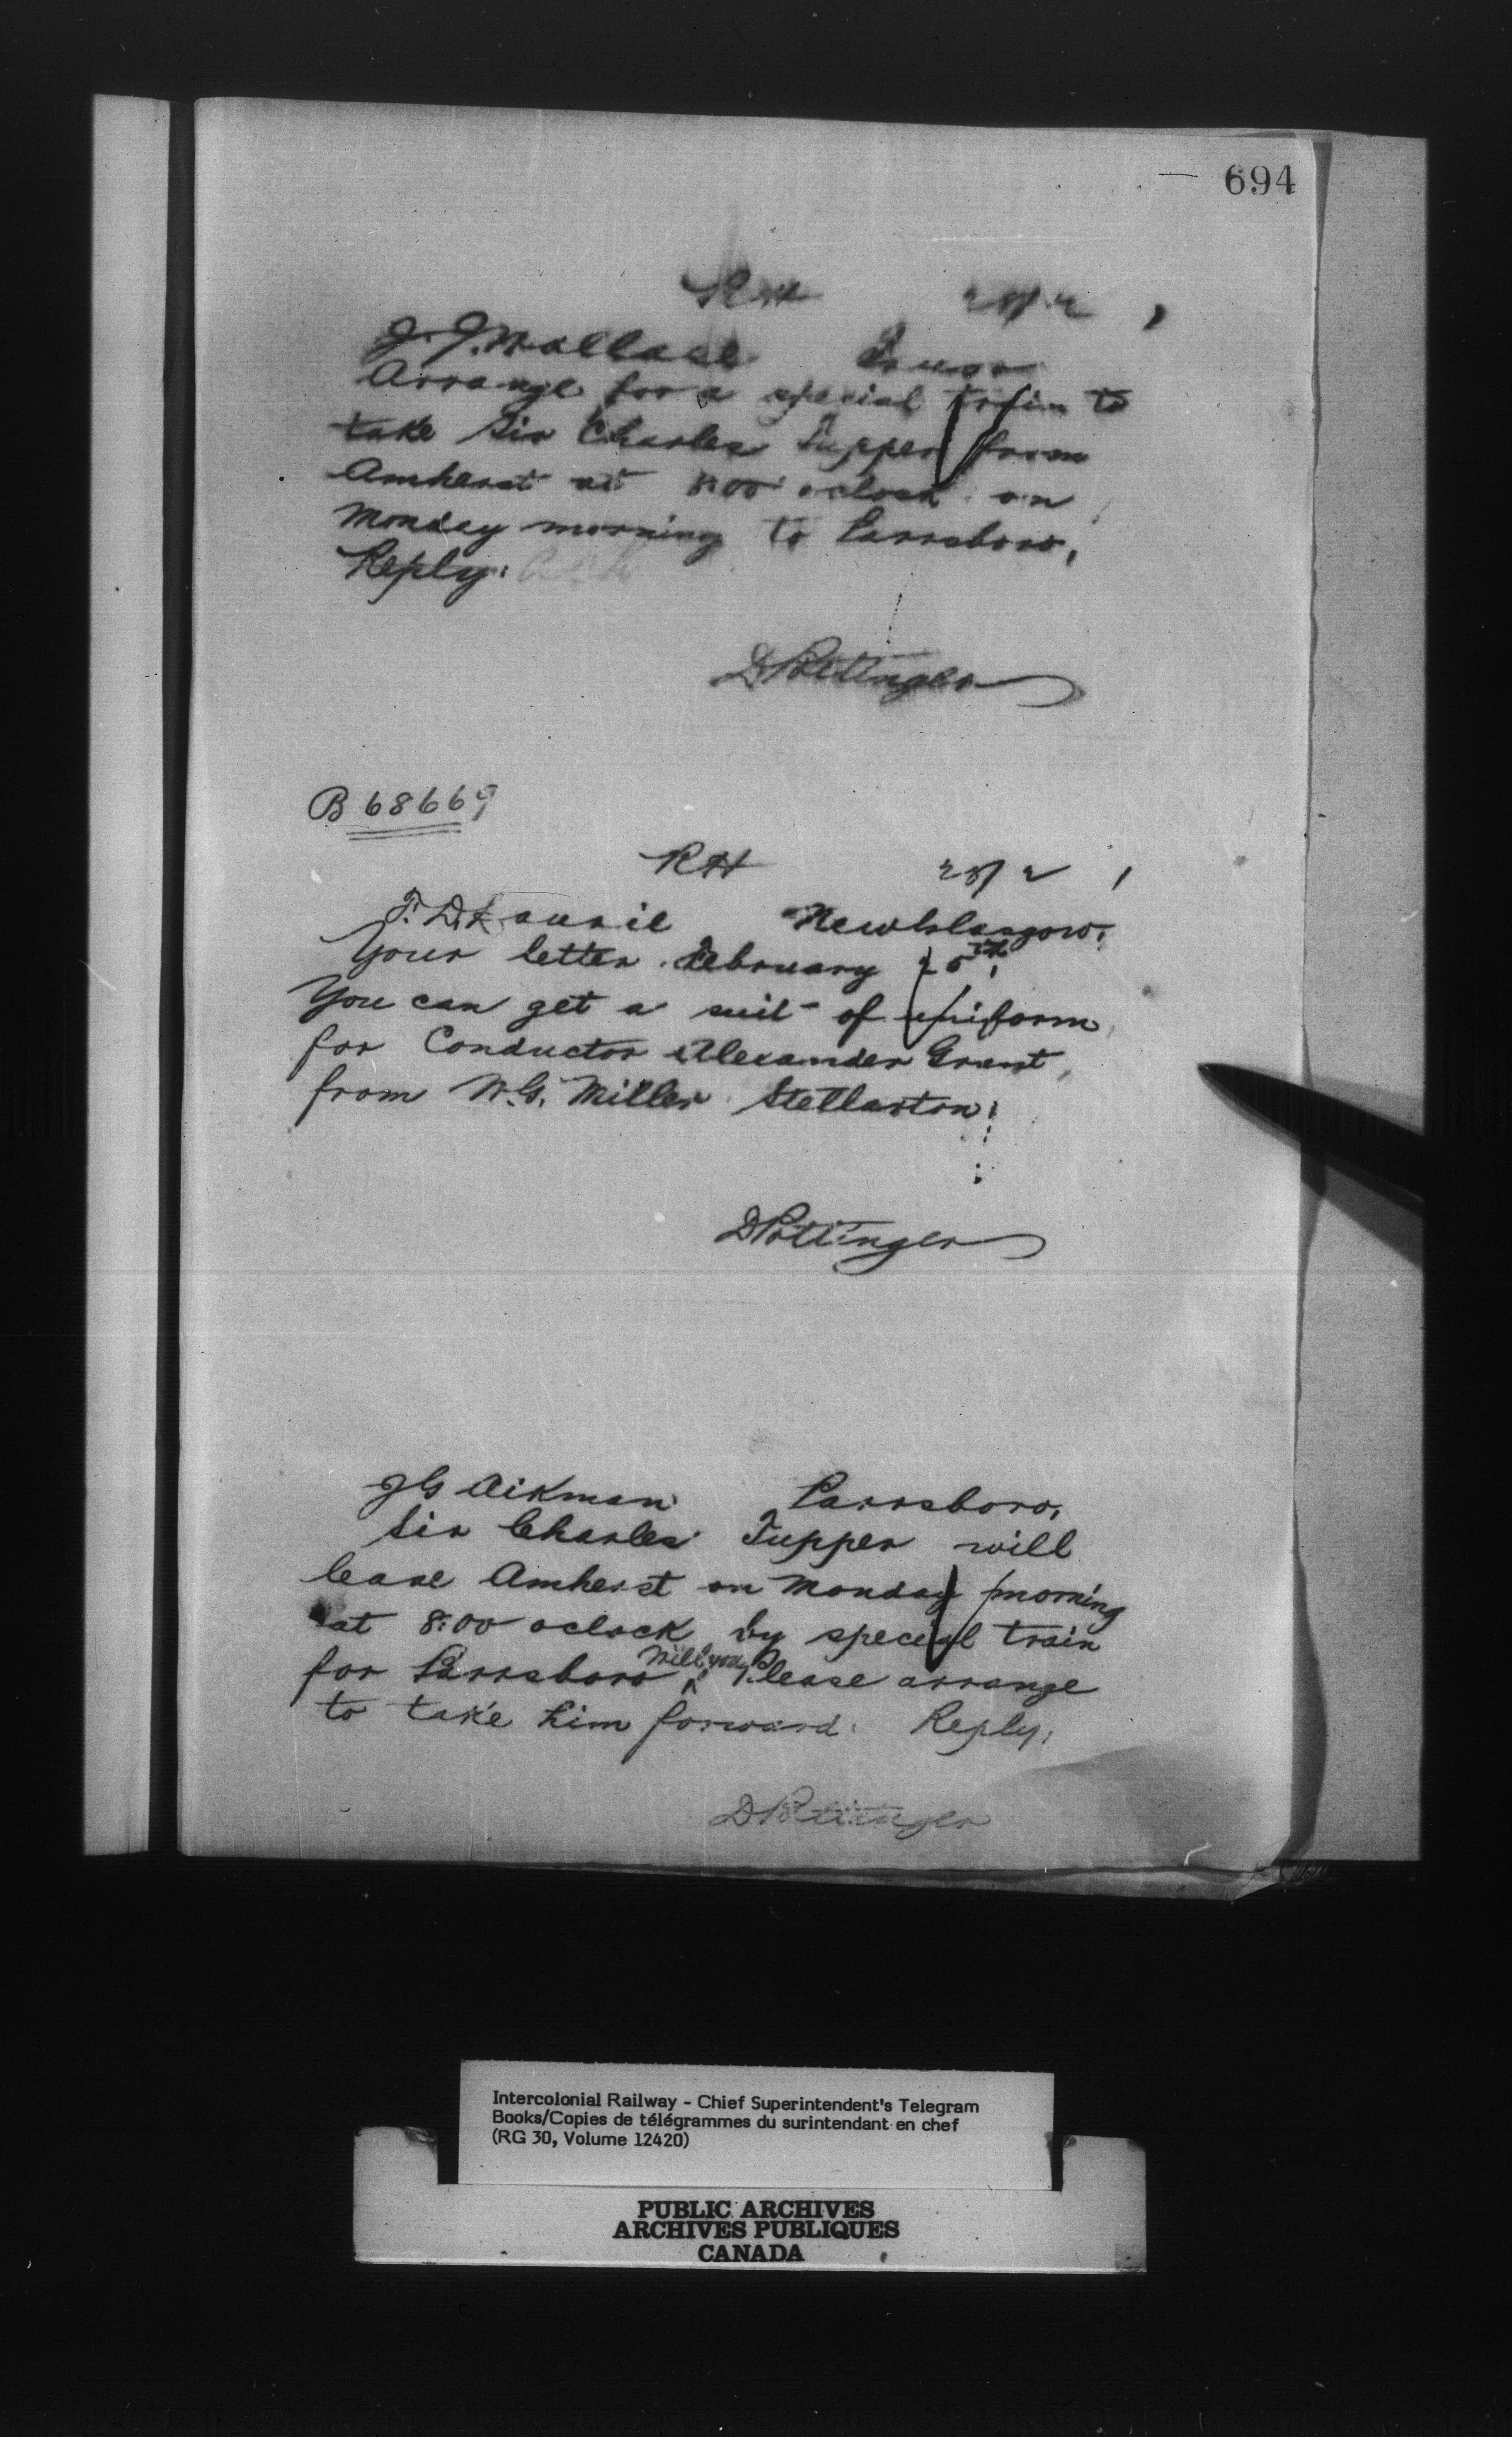 694
RH 28/2
J. J. Wallace Truro
Arrange for a special train to
take Sir Charles Tupper from
Amherst at 8:00 oclock on
Monday morning to Parrsboro,
Reply.
D Pottinger
B 68669
RH 28/2
T. D. Laurie New Glasgow.
Your letter February 25th,
You can get a suit of uniform
for Conductor Alexander Grant
from W. G. Miller Stellarton.
D Pottinger
J G Aikman Parrsboro,
Sir Charles Tupper will
leave Amherst on Monday morning
at 8:00 oclock by special train
for Parrsboro. Will you Please arrange
to take him forward. Reply.
D Pottinger
Intercolonial Railway - Chief Superintendent's Telegram
Books/Copies de télégrammes du surintendant en chef
(RG 30, Volume 12420)
PUBLIC ARCHIVES
ARCHIVES PUBLIQUES
CANADA